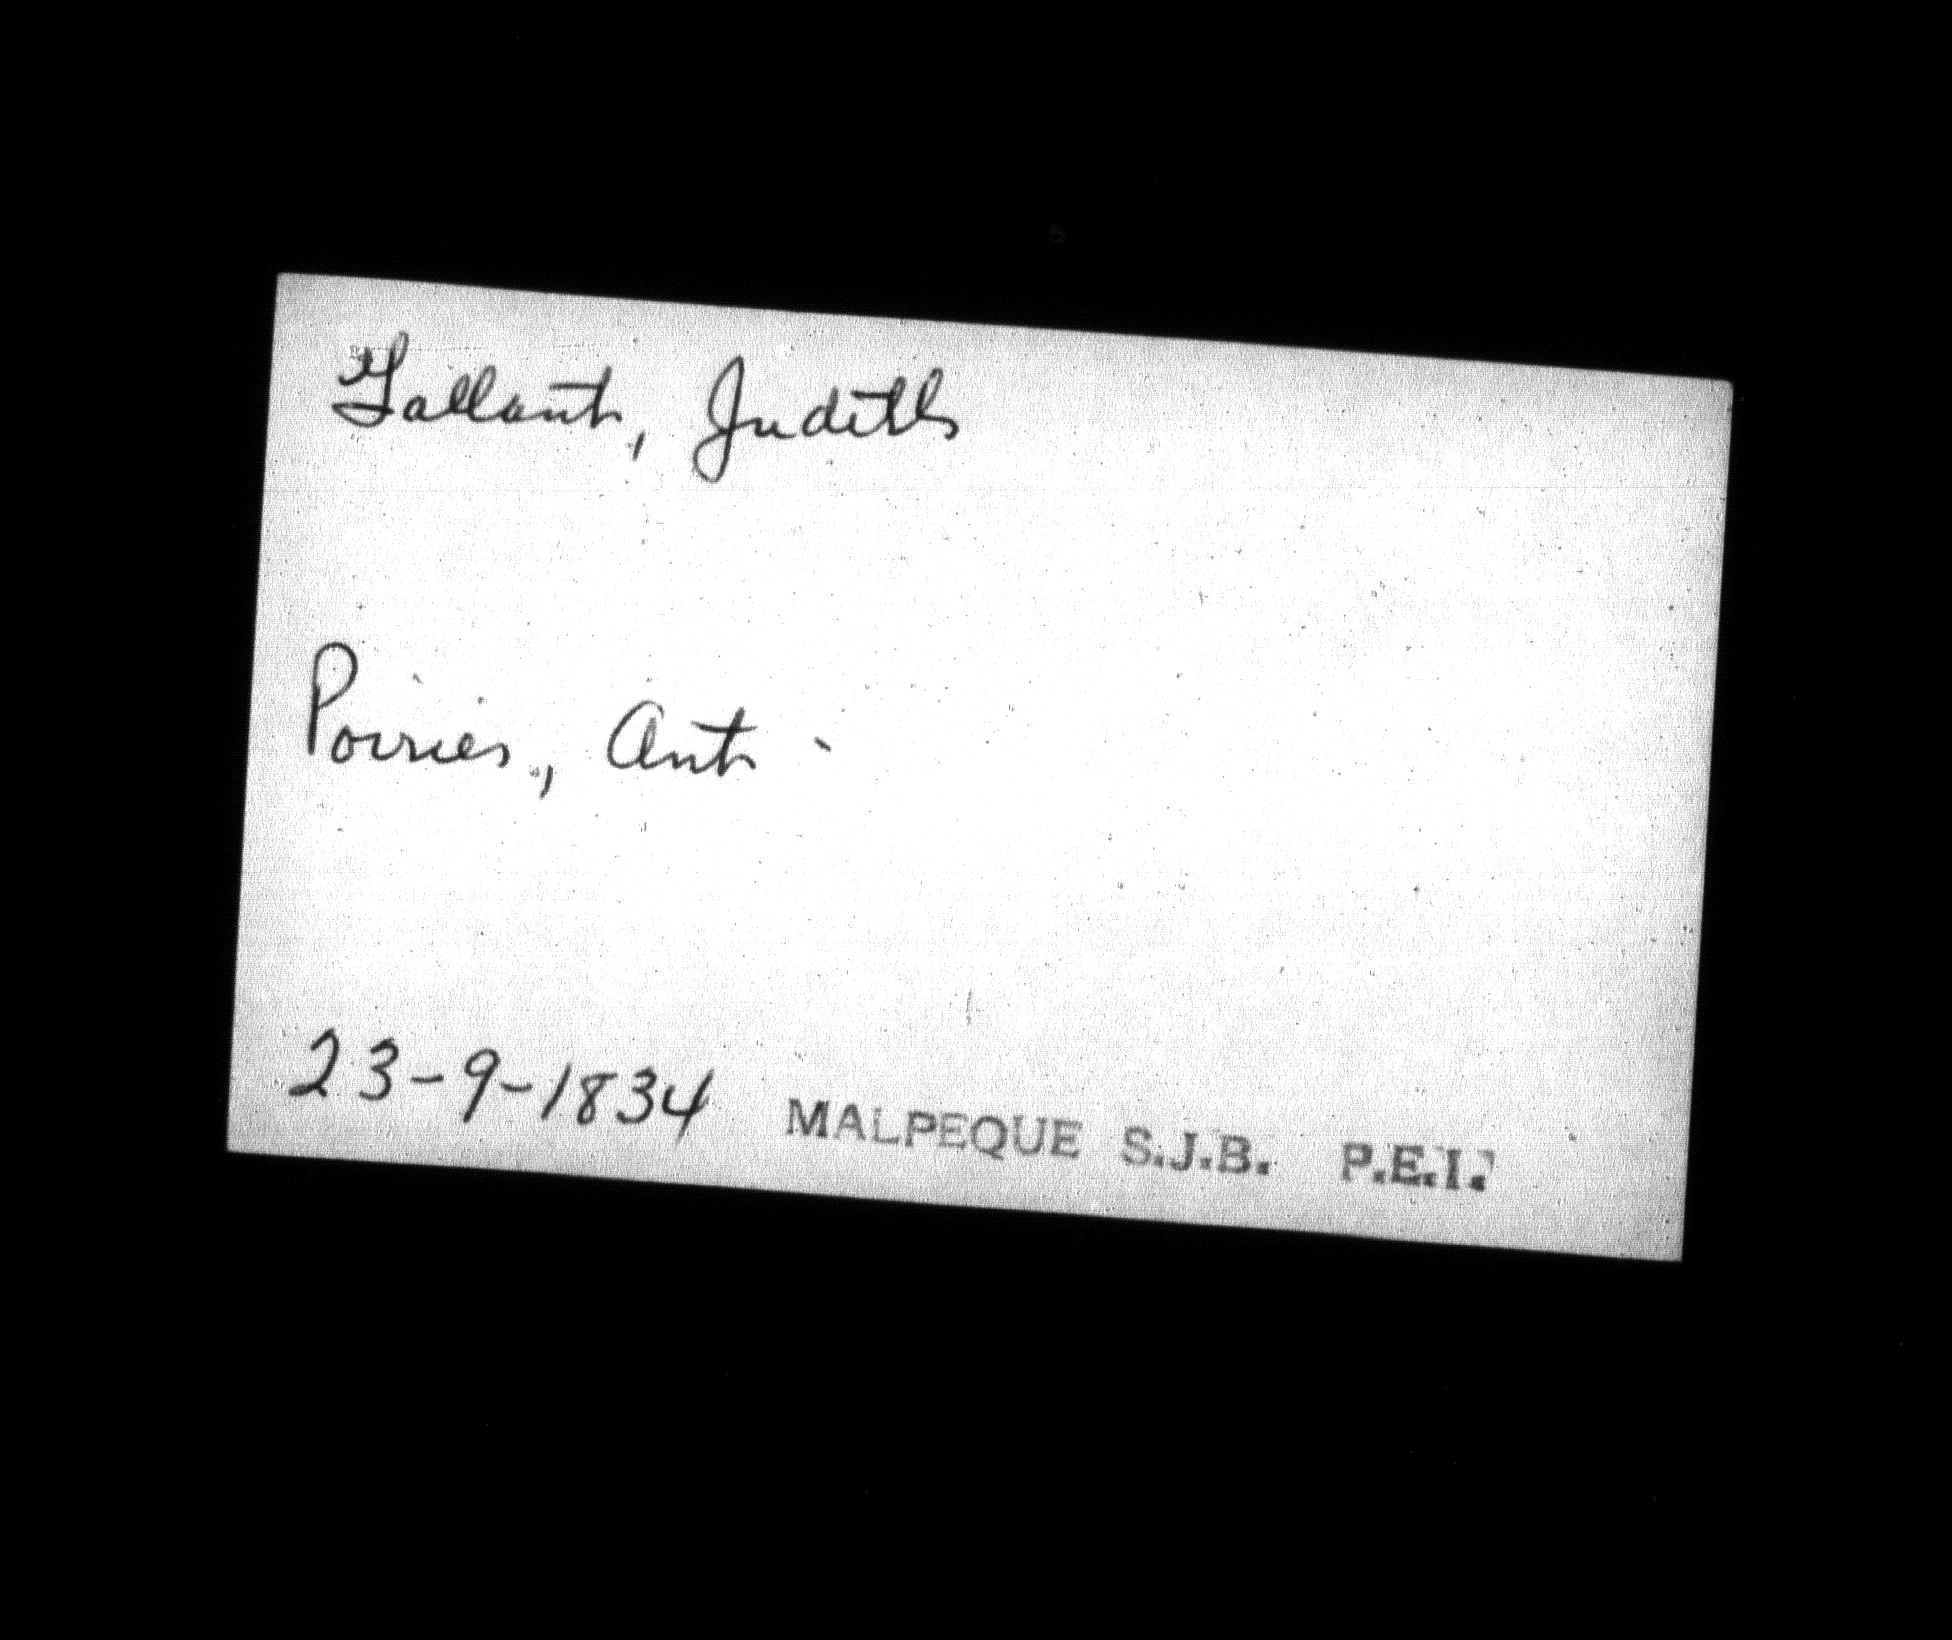 Gallant, Judith
Poirier, Ant.
23-9-1834 MALPEQUE S.J.B. P.E.I.